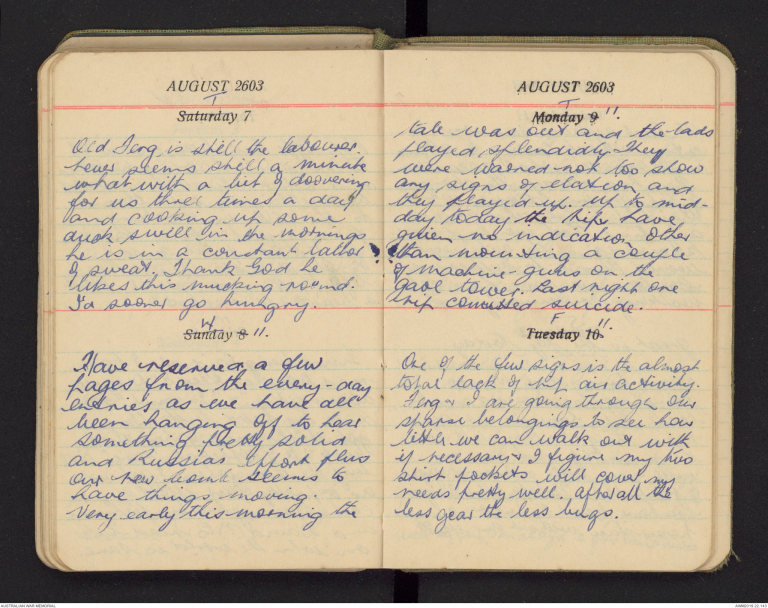 AUGUST 2603
T
Saturday 7
Old Ferg is still the labourer.
Never seems still a minute
what with a bit of doovering
for us three times a day
and cooking up some
duck swill in the mornings
he is in a constant lather
of sweat. Thank God he
likes this mucking round.
I'd sooner go hungry.
W
Sunday 8 11.
Have reserved a few
pages from the every-day
entries as we have all
been hanging off to hear
something pretty solid
and Russia's effort plus
our new bomb seems to
have things moving.
Very early this morning the
AUGUST 2603
T
Monday 9 11.
tale was out and the lads
played splendidly. They
were warned not too show
any signs of elation and
they played up. Up to mid-
day today the Nips have
given no indication other
than mounting a couple
of machine-guns on the
gaol tower. Last night one
Nip committed suicide.
F
Tuesday 10 11.
One of the few signs is the almost
total lack of Nip air activity.
Ferg & I are going through our
sparse belongings to see how
little we can walk out with
if necessary & I figure my two
shirt pockets will cover my
needs pretty well. after all the
less gear the less bugs.
AUSTRALIAN WAR MEMORIAL